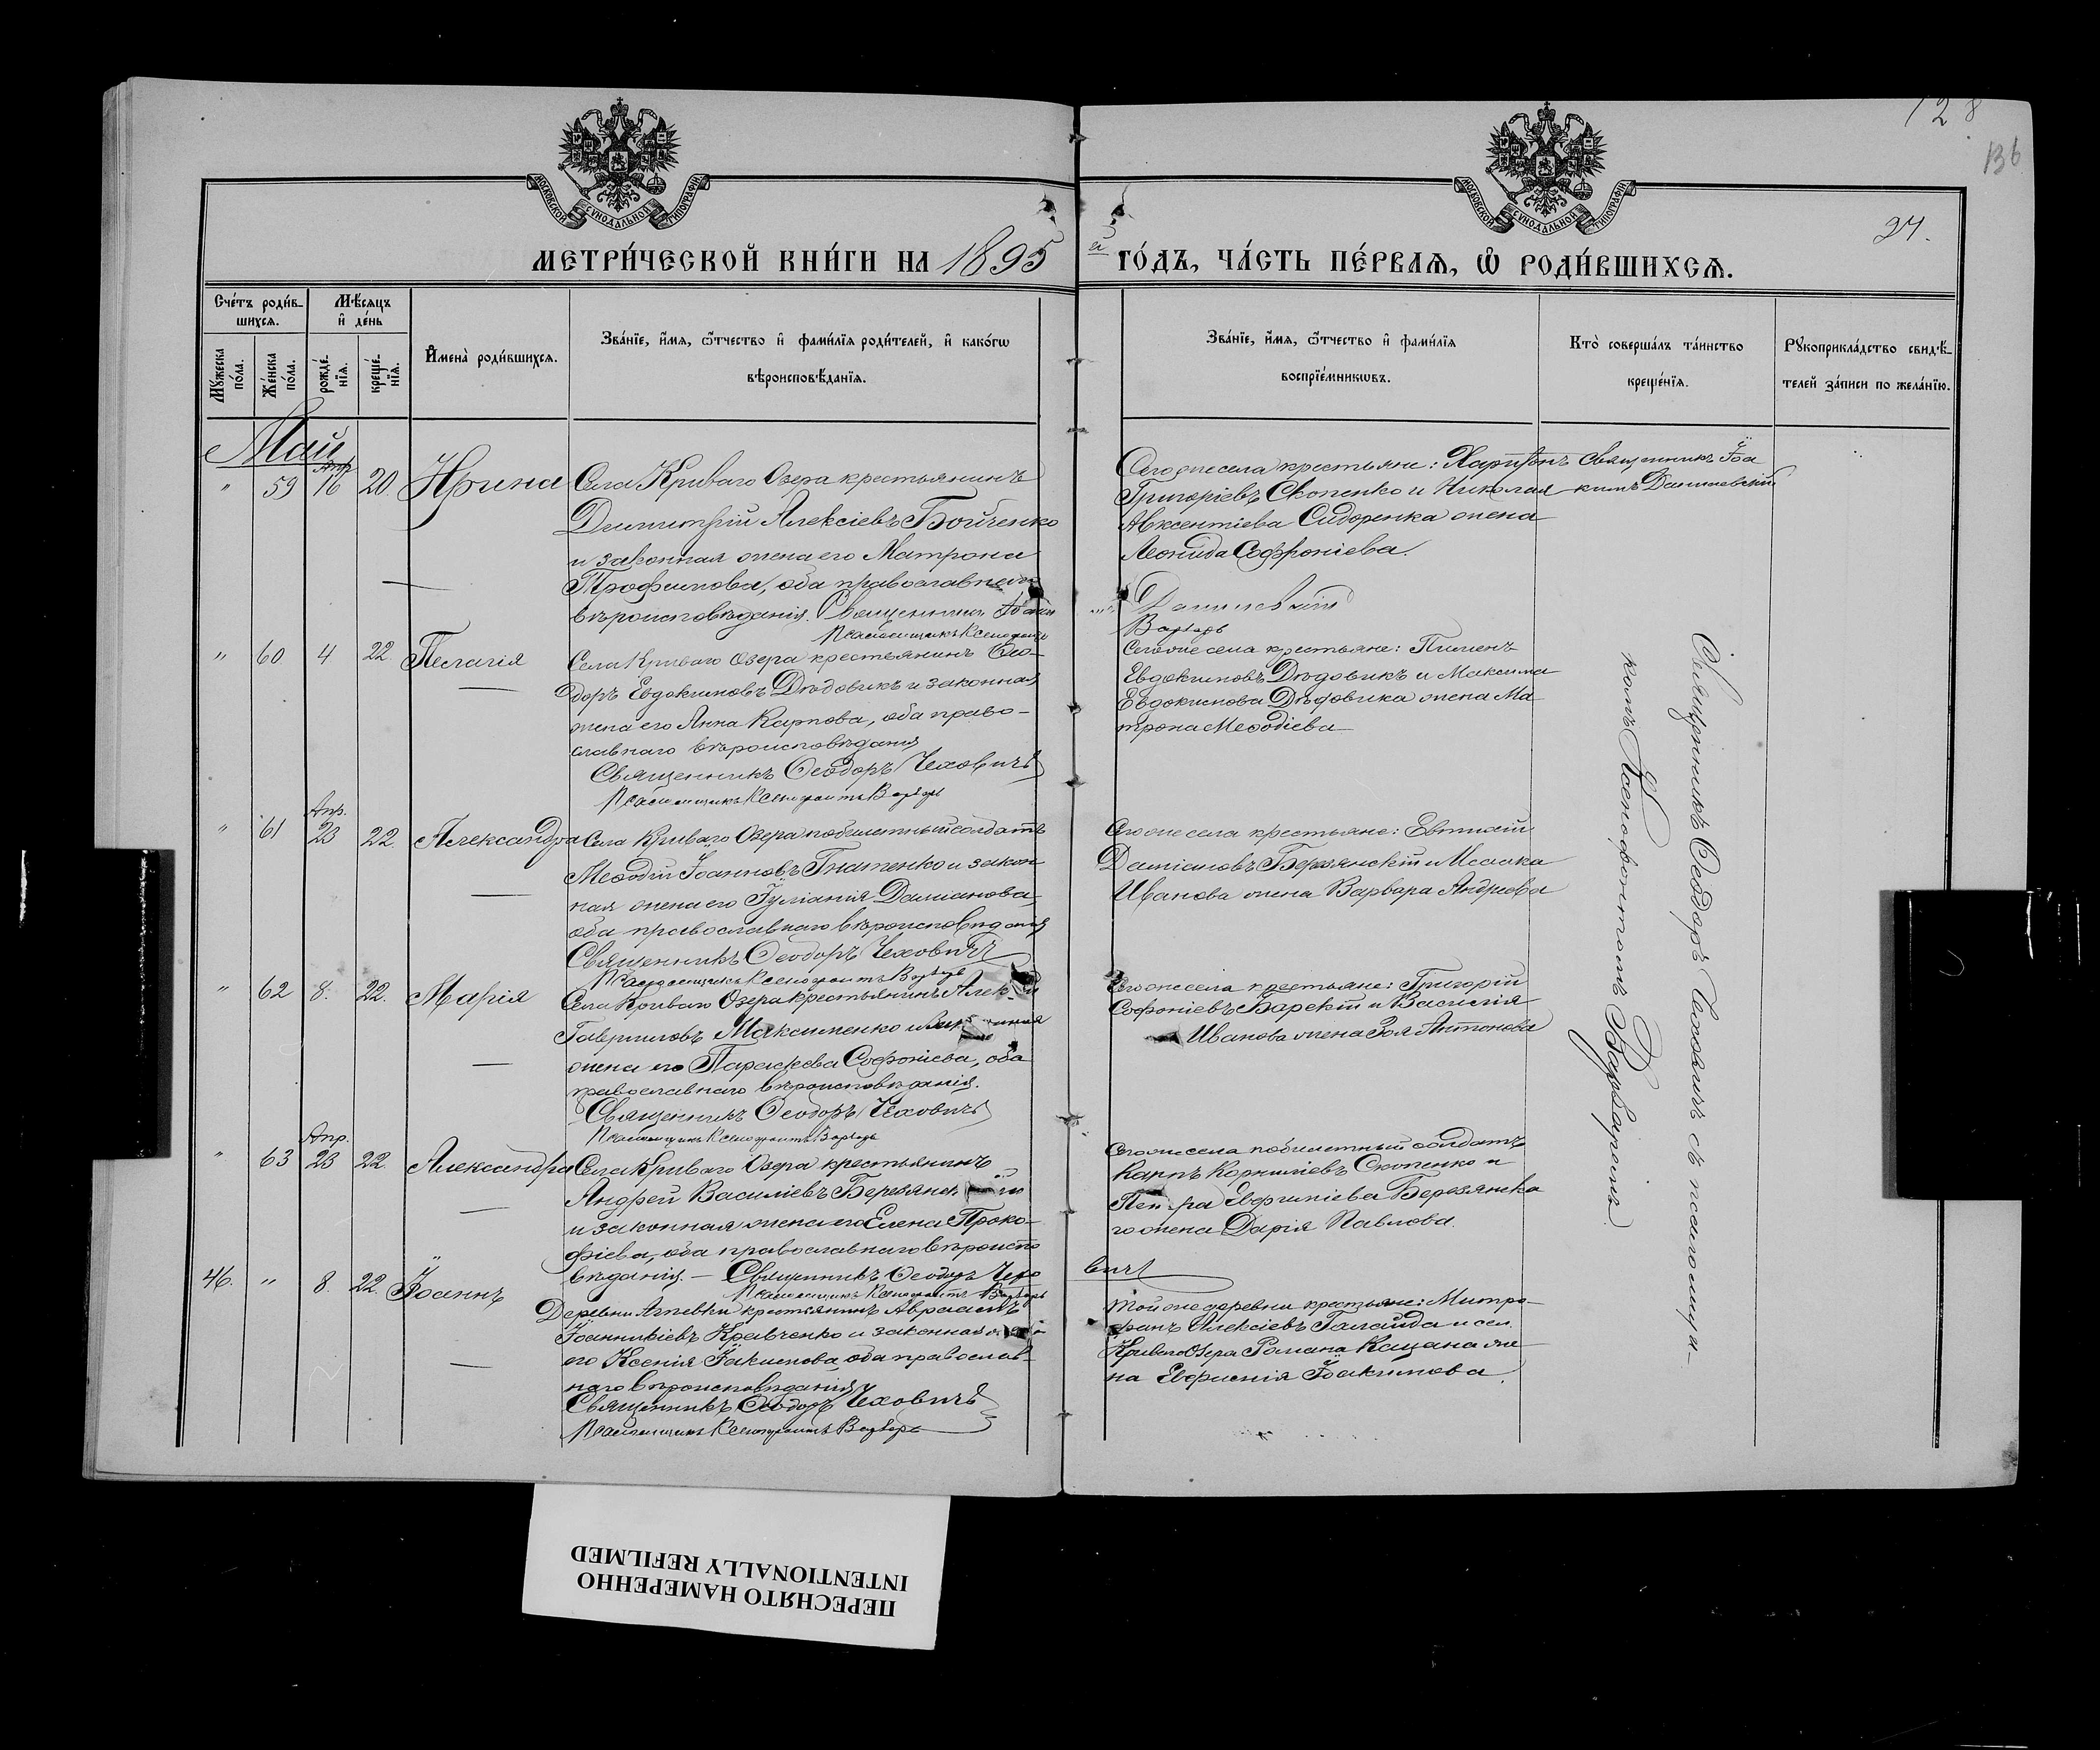 128
136
МОСКОВСКОЙ СѴНОДАЛЬНОЙ ТИПОГРАФІИ
МОСКОВСКОЙ СѴНОДАЛЬНОЙ ТИПОГРАФІИ
МЕТРИ́ЧЕСКОЙ КНИ́ГИ НА 1895
й ГО́ДЪ, ЧА́СТЬ ПЕ́РВАѦ, Ѡ РОДИ́ВШИХСѦ.
Сче́тъ роди́в-
шихсѧ.
Мꙋ́жеска по́ла.
Же́нска по́ла.
Мѣ́сѧцъ
и҆ де́нь
рожде́-
нїѧ.
креще́-
нїѧ.
И҆мена̀ роди́вшихсѧ.
Зва́нїе, и҆́мѧ, ѻ҆́тчество и҆ фами́лїѧ роди́телей, и҆ како́гѡ
вѣроисповѣ́данїѧ.
Зва́нїе, и҆́мѧ, ѻ҆́тчество и҆ фами́лїѧ
воспрїе́мникѡвъ.
Кто̀ соверша́лъ та́инство
креще́нїѧ.
Рꙋкоприкла́дство свидѣ́-
телей за́писи по жела́нїю.
Май
" 59 Апр. 16 20. Ирина
Села Криваго Озера крестьянинъ
Димитрій Алексіевъ Бойченко
и законная жена его Матрона
Трофимова, оба православнаго
вѣроисповѣданія. Священникъ Іоаки
Псаломщикъ Ксенофонтъ
Сего же села крестьяне: Харитонъ
Григоріевъ Скопенко и Николая
Авксентіева Сидоренка жена
Леонида Софроніева.
Даниловскій
Варварь
Священникъ Іоа
кимъ Даниловскій
" 60 4 22 Пелагія
Села Криваго Озера крестьянинъ Ѳео-
доръ Евдокимовъ Дѣдовикъ и законная
жена его Анна Карпова, оба право-
славнаго вѣроисповѣданія
Священникъ Ѳеодоръ Чеховичъ
Псаломщикъ Ксенофонтъ Варварь
Сего же села крестьяне: Пименъ
Евдокимовъ Дѣдовикъ и Максима
Евдокимова Дѣдовика жена Ма-
трона Меѳодіева
Священникъ Ѳеодоръ Чеховичъ съ псаломщи-
комъ Ксенофонтомъ Варваремъ.
" 61 Апр. 23 22. Александра
Села Криваго Озера побилетный солдатъ
Меѳодій Іоанновъ Гнатенко и закон-
ная жена его Іуліанія Даміанова,
оба православнаго вѣроисповѣданія
Священникъ Ѳеодоръ Чеховичъ
Псаломщикъ Ксенофонтъ Варварь
Сего же села крестьяне: Евтихій
Даміановъ Березянскій и Исаака
Иванова жена Варвара Андреева
" 62 8. 22. Марія
Села Криваго Озера крестьянинъ Алек й
Гавриловъ Максименко и законная
жена его Параскева Софоніева, оба
православнаго вѣроисповѣданія.
Священникъ Ѳеодоръ Чеховичъ
Псаломщикъ Ксенофонтъ Варварь
Сего же села крестьяне: Григорій
Софоніевъ Барскій и Василія
Иванова жена Зоя Антонова
" 63 Апр. 23 22. Александра
Села Криваго Озера крестьянинъ
Андрей Василіевъ Березянск
и законная жена его Елена Проко-
фіева, оба православнаго вѣроиспо
вѣданія. — Священникъ Ѳеодоръ Чехо
Псаломщикъ Ксенофонтъ Варварь
Сего же села побилетный солдатъ
Карпъ Корниліевъ Скопенко и
Петра Евфиміева Березянска
го жена Дарія Павлова.
вичъ
46. " 8. 22. Іоаннъ
Деревни крестьянинъ Авраамъ
Іоанникіевъ Кравченко и законная
его Ксенія Іакимова, оба православ-
наго вѣроисповѣданія
Священникъ Ѳеодоръ Чеховичъ
Псаломщикъ Ксенофонтъ Варварь
Той же деревни крестьяне: Митро-
фанъ Алексіевъ Галайда и сел.
Криваго Озера Романа Кацана же
на Евфимія Іоакимова.
ПЕРЕСНЯТО НАМЕРЕННО
INTENTIONALLY REFILMED